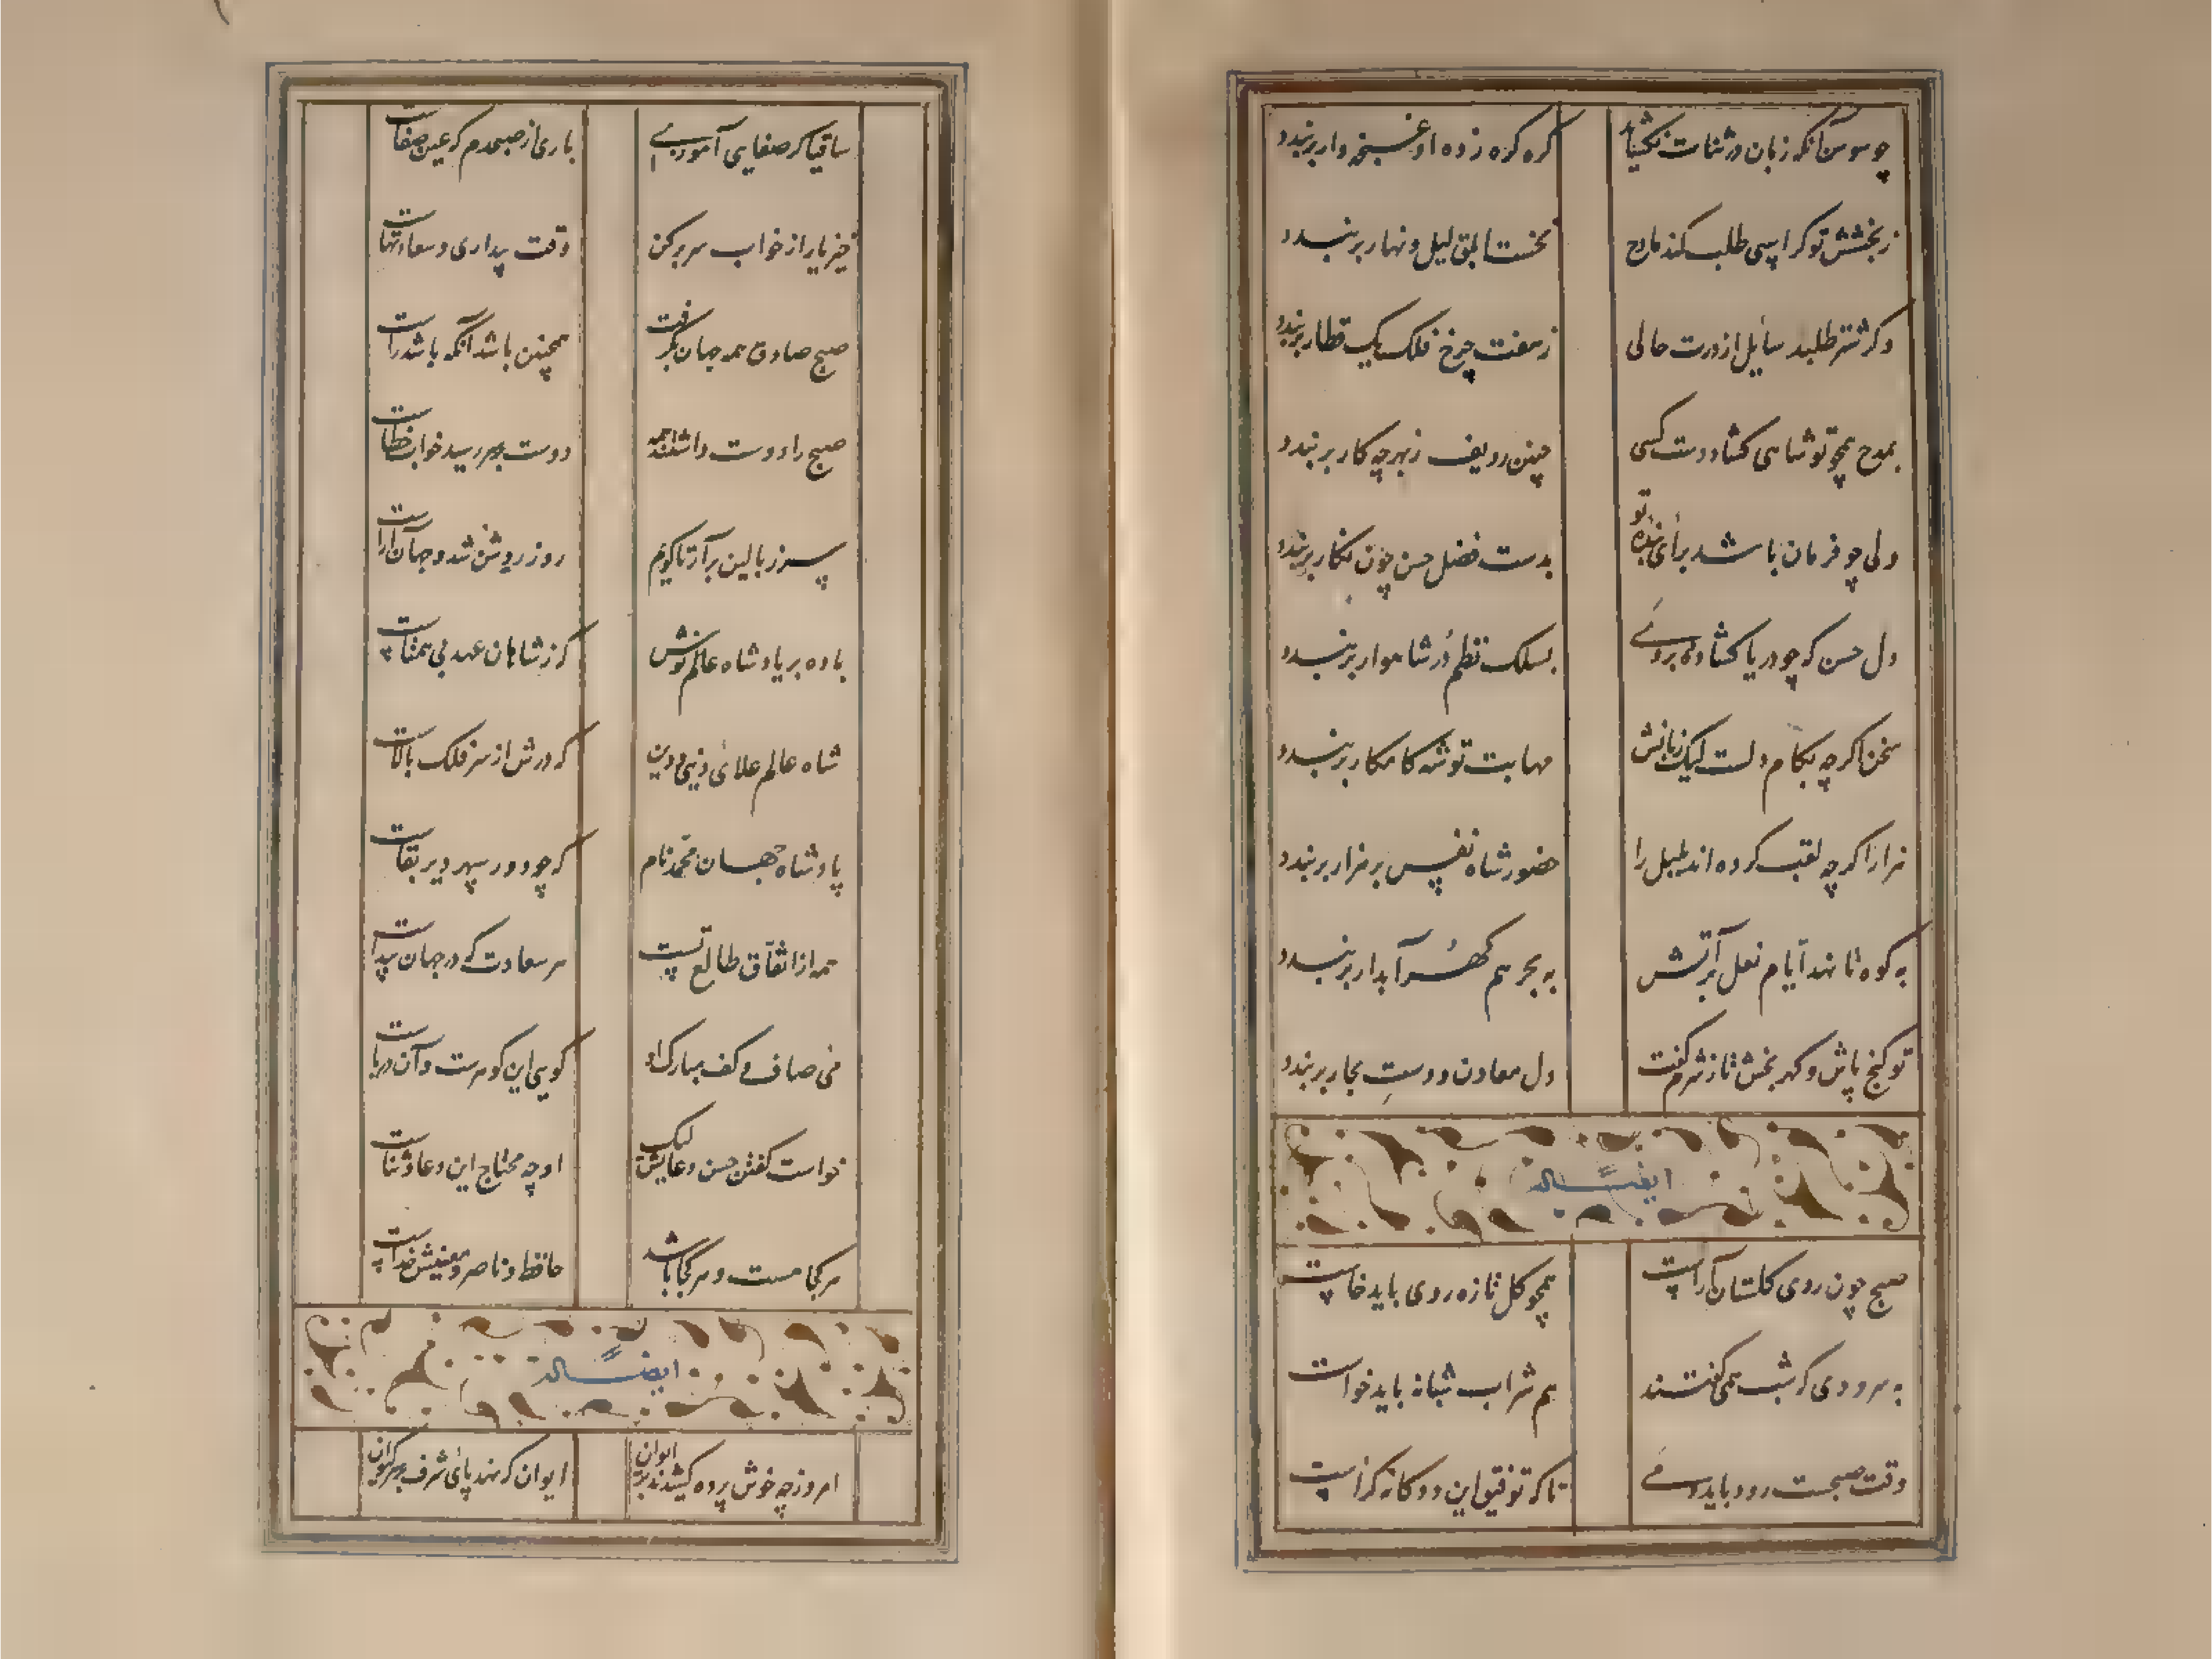 چو سوسن آنکه زبان در ثنات نگشاید گره گره زده او غنچه وار بربندد
ز بخشش تو گر اسپی طلب کند مادح نخست ابلق لیل و نهار بربندد
وگر شتر طلبد سایل از درت حالی ز هفت چرخ فلک یک قطار بربندد
بمدح همچو تو شاهی گشاد دست کسی چنین ردیف ز بهر چه کار بربندد
ولی چو فرمان باشد برای بنده تو بدست فضل حسن چون نگار بربندد
دل حسن که چو دریا گشاده بروی بسلک نظم در شاهوار بربندد
سخن اگرچه بکام دلست لیک زبانش مهابت تو شه کامکار بربندد
هزار را گرچه لقب کرده اند بلبل را حضور شاه نفس بر هزار بربندد
به کوه تا نهد ایام نعل بر آتش به بحر هم گهر آبدار بربندد
تو گنج پاش و گهر بخش تا ز شرم کفت دل معادن و دست بحار بربندد
ایضاً له
صبح چون روی گلستان آراست همچو گل تازه روی باید خاست
به سرودی که شب همی گفتند هم شراب شبانه باید خواست
وقت صبحست رود باید و می تا که توفیق این دوگانه کراست
ساقیا گر صفایی آموزی باری از صبحدم که عین صفاست
خیز یارا ز خواب سر برکن وقت بیداری و سعادتهاست
صبح صادق همه جهان بگرفت همچنین باشد آنکه باشد راست
صبح را دوست داشتند همه دوست بر سر رسید خواب خطاست
سر ز بالین برآر تا گویم روز روشن شد و جهان آراست
باده بر یاد شاه عالم نوش کز شاهان عهد بی همتاست
شاه عالم علای دنیی و دین که درش از سر فلک بالاست
پادشاه جهان محمد نام که چو دور سپهر دیر بقاست
همه از اتفاق طالع تست هر سعادت که در جهان پیداست
می صاف و کف مبارک او گویی این گوهرست و آن دریاست
خواست گفتن حسن دعایش لیک او چه محتاج این دعا و ثناست
هر کجا هست و هر کجا باشد حافظ و ناصر و معینش خداست
ایضاً له
امروز چه خوش پرده کشیدند بر ایوان ایوان که نهد پای شرف بر سر کیوان